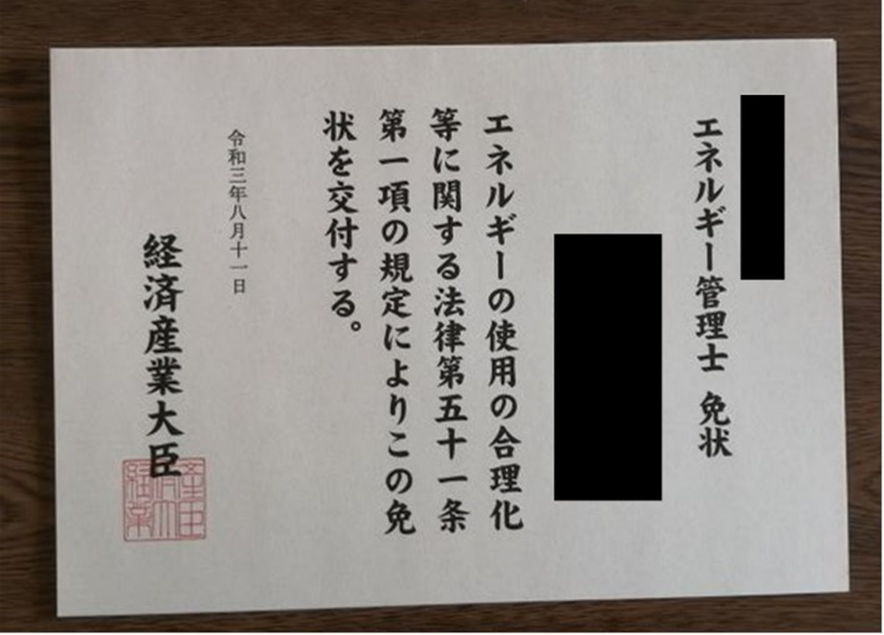 エネルギー管理士 免状
エネルギーの使用の合理化
等に関する法律第五十一条
第一項の規定によりこの免
状を交付する。
令和三年八月十一日
経済産業大臣